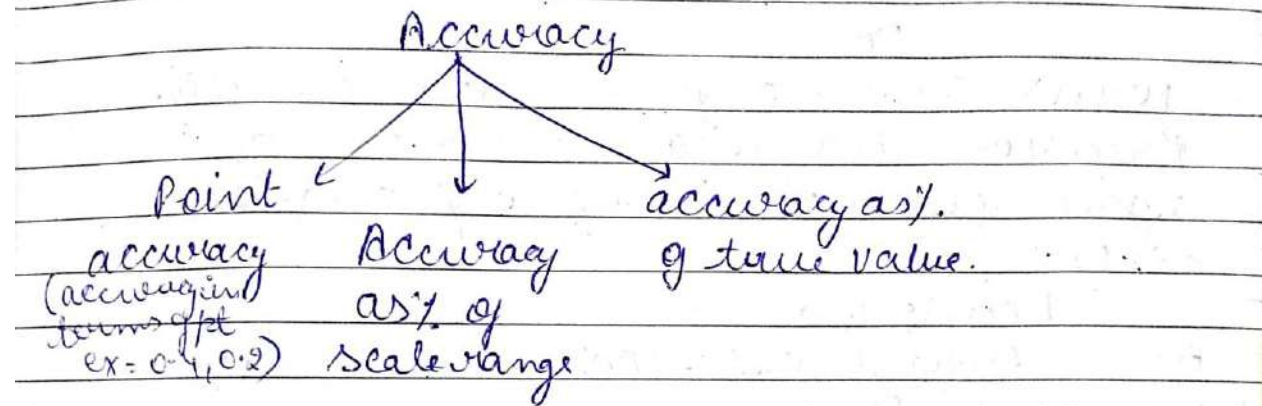 Accuracy
Point
accuracy
(accuracy in
terms of pt
ex = 0.4, 0.2)
Accuracy
as % of
scale range
accuracy as %.
of true value.